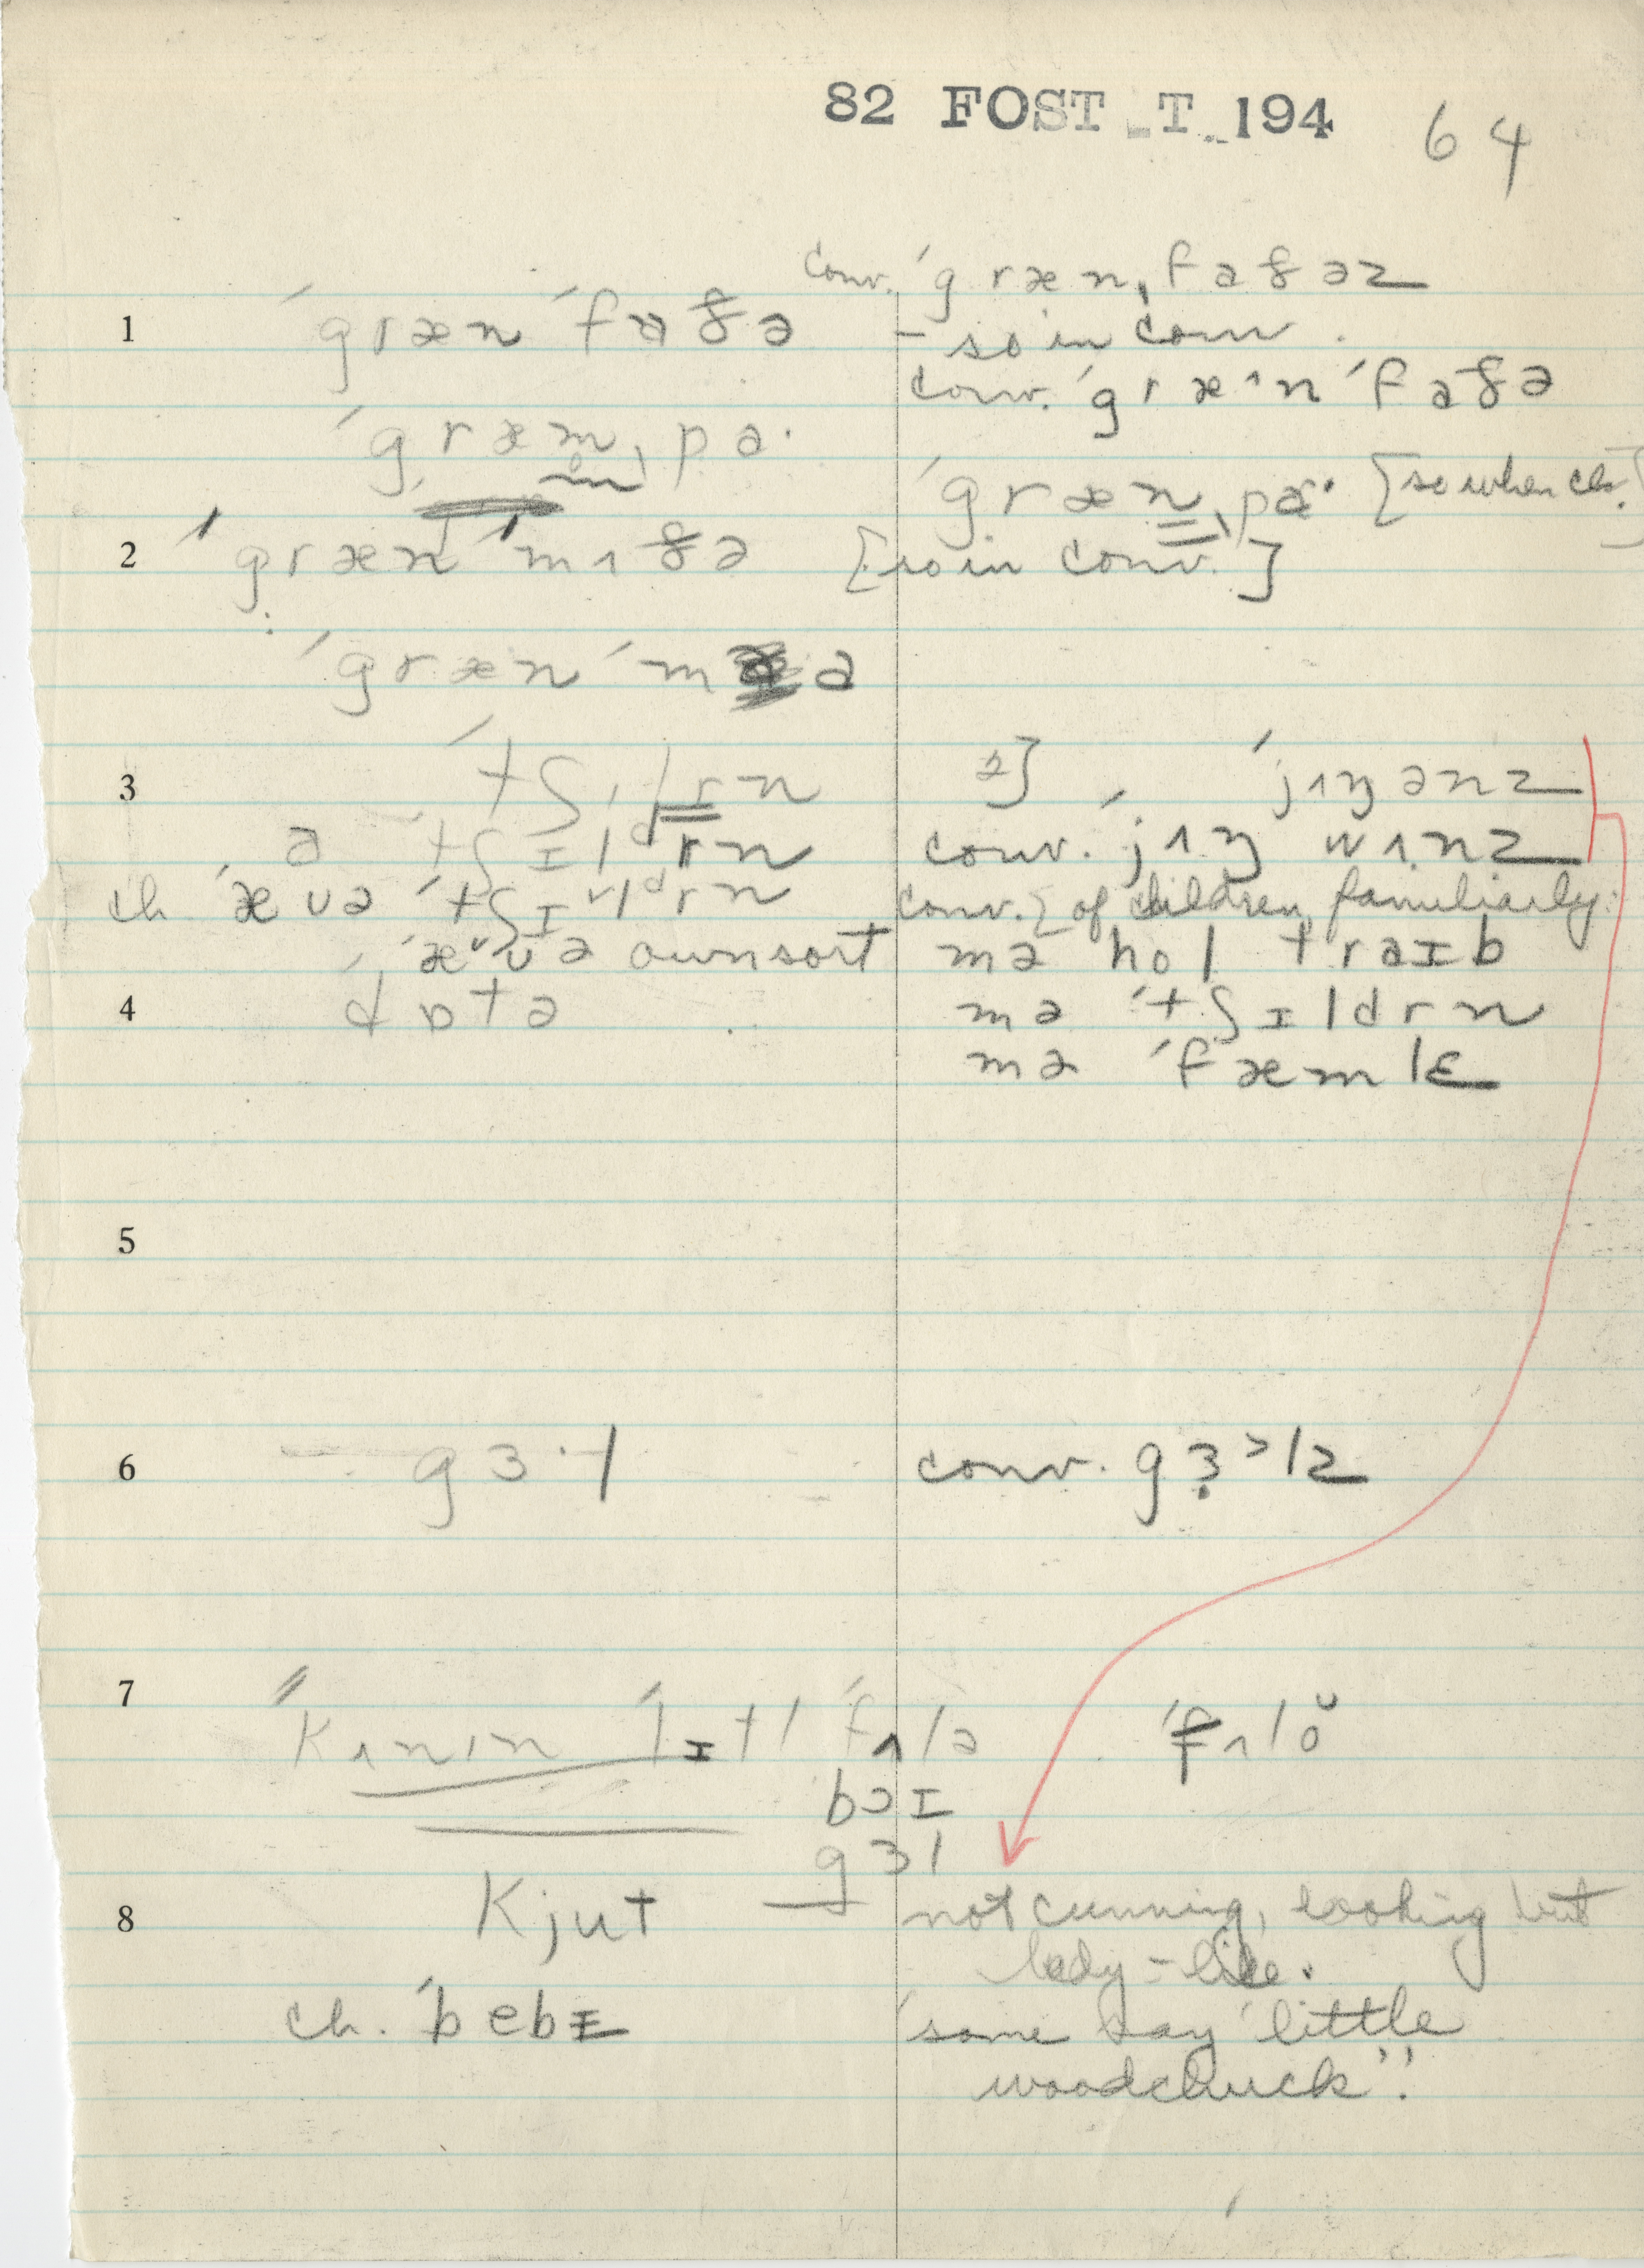 82 FOST T 194 64
conv. ˈgrænˌfaðəz
1 ˈgrænˈfɒðə – so in conv.
conv. ˈgræ^nˈfaðə
ˈgræmˌpa·
ˈgrænˌpa· [so when ch.]
2 ˈgrænˈmʌðə [so in conv.]
ˈgrænˈm a
3 ˈtʃɪldrn 2] ˈjʌŋənz
ə ˈtʃɪldrn conv. ˈjʌŋ wʌnz
ch ˈævə ˈtʃɪldrn conv.] of children, familiarly:
ˈævə own sort mə hol traɪb
4 ˈdɒtə mə ˈtʃɪldrn
mə ˈfæmlɛ
5
6 gɜ·l conv. gɜ˃lz
7 ˈkʌnɪn ˈlɪtl ˈfʌlə ˈfʌlo
bɔɪ
gɜl
8 kjut not cunning, looking but
lady-like.
ch. ˈbebɪ some say "little
woodchuck".